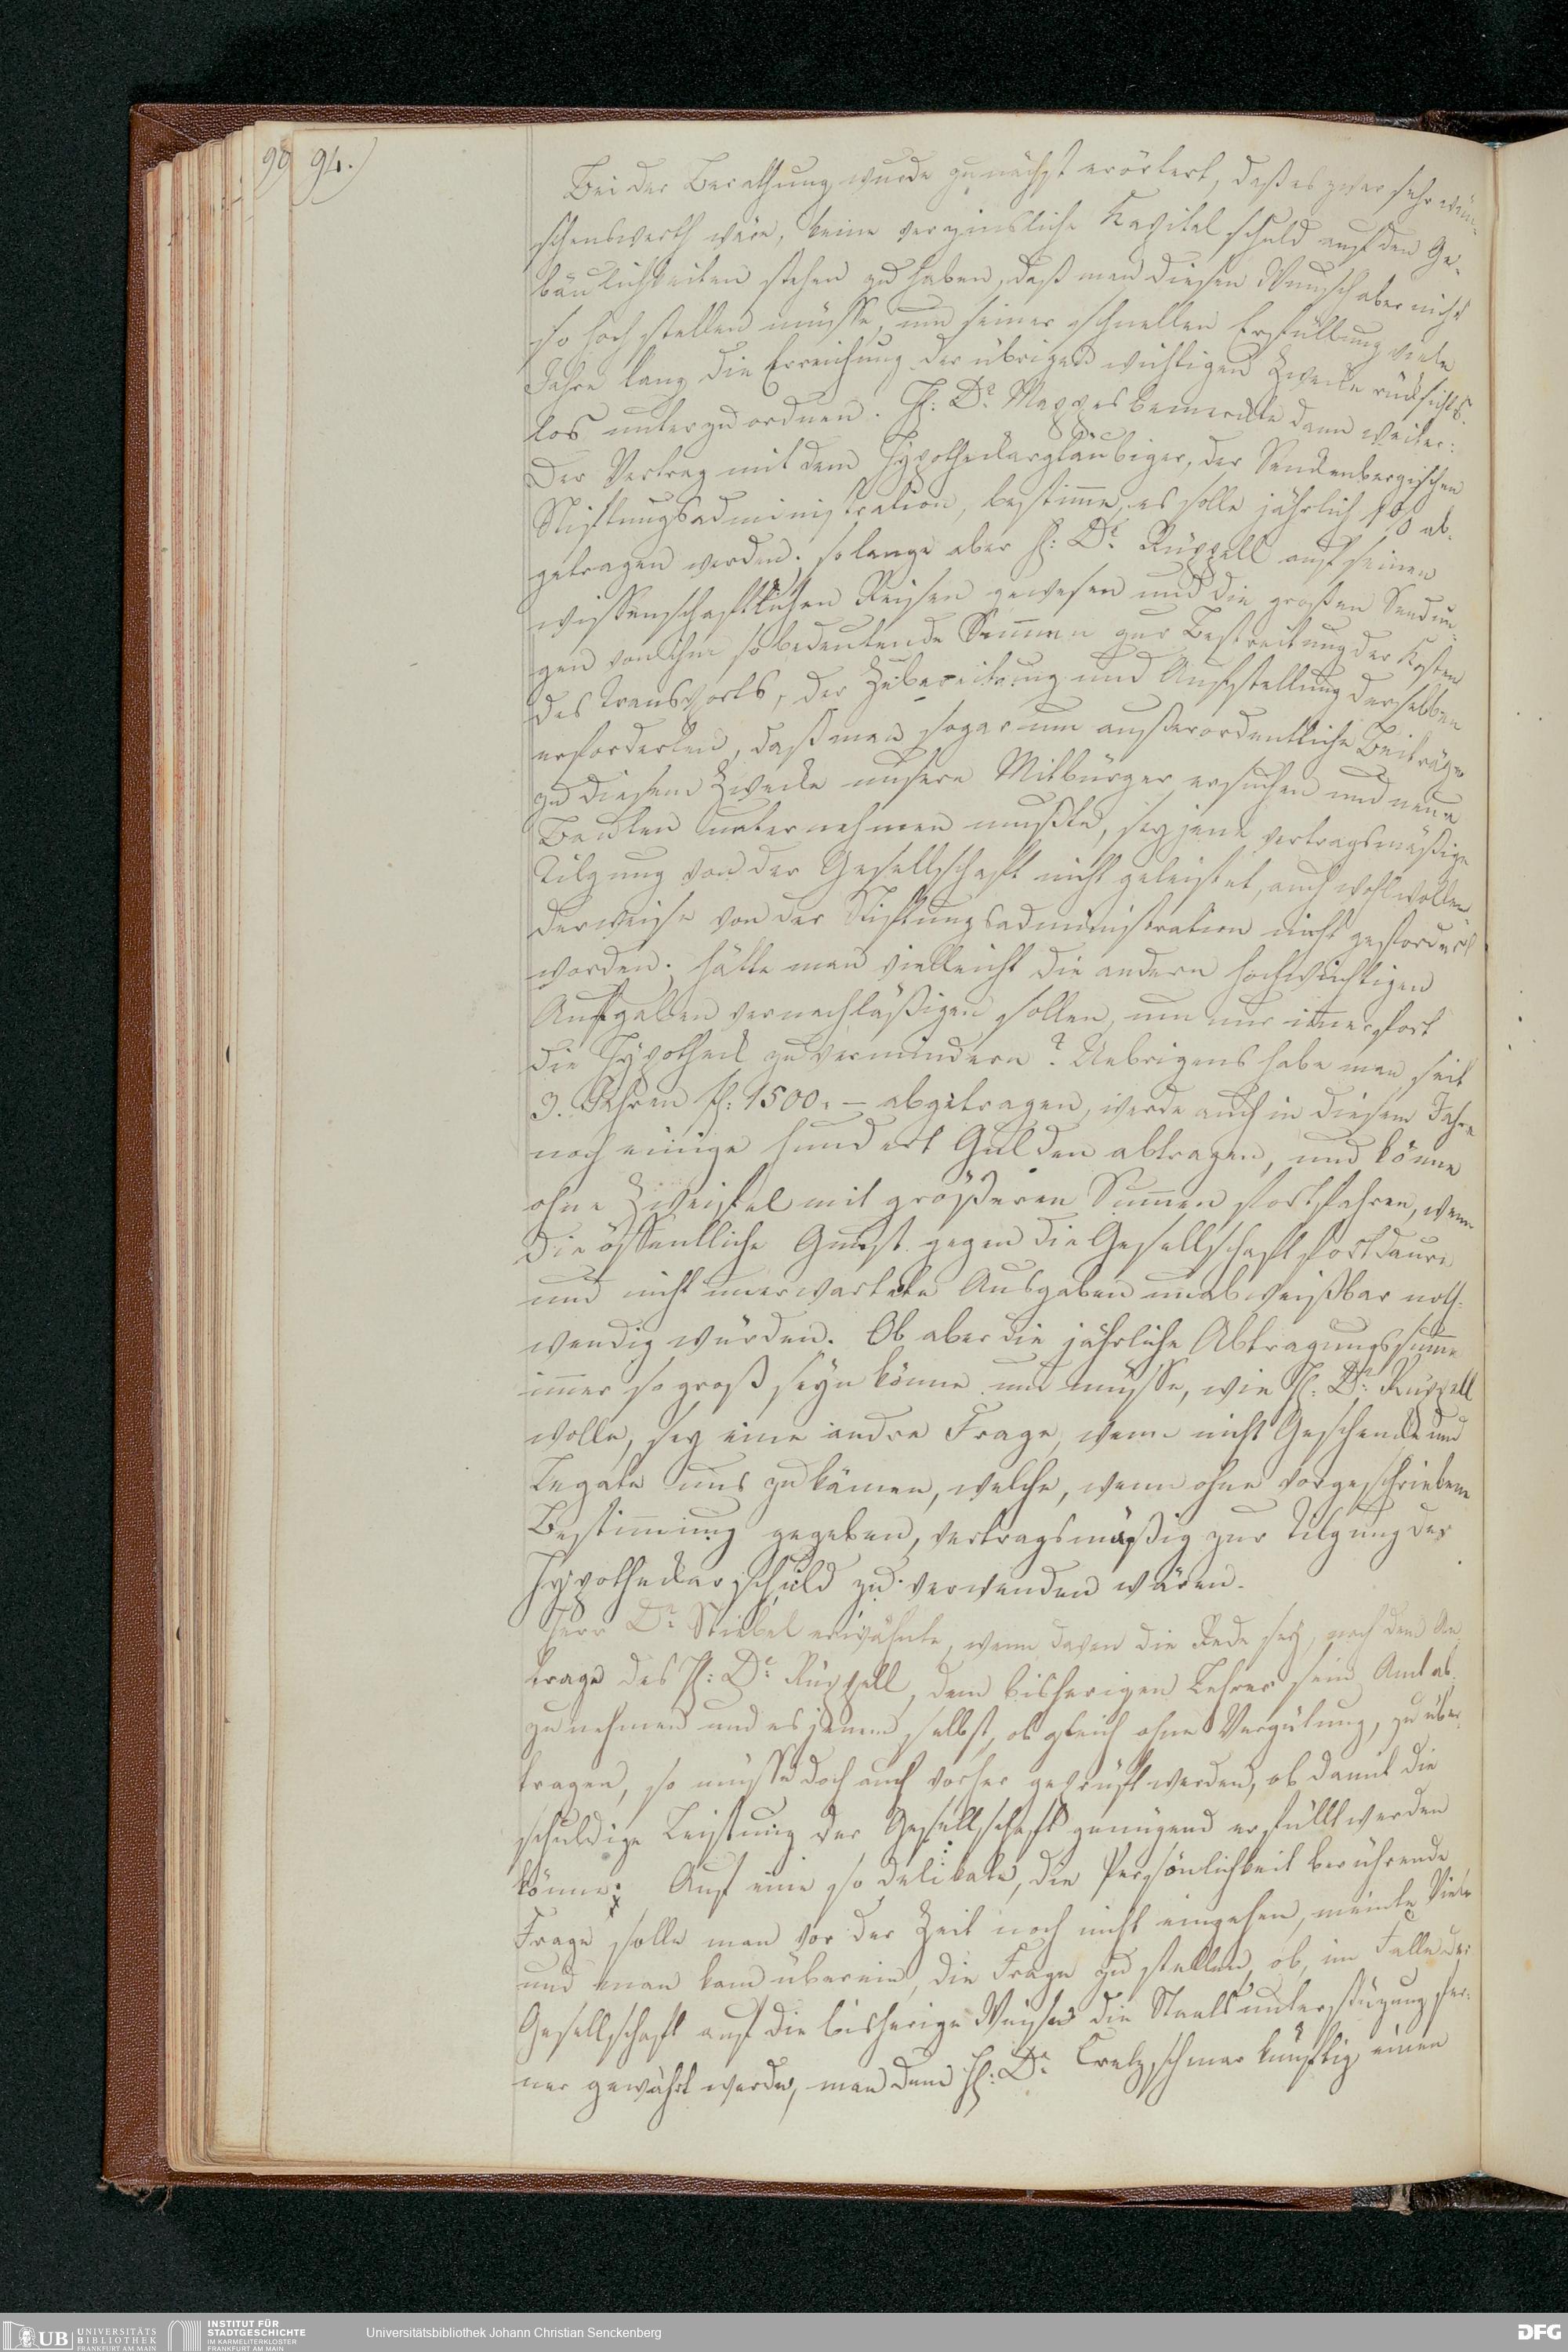 99 94.)
Bei der Berathung wurde zunächst erörtert, daß es zwar sehr wün-
schenswerth wäre, keine verzinsliche Kapitalschuld auf den Ge-
bäulichkeiten stehen zu haben, daß man diesen Wunsch aber nicht
so hoch stellen müsse, um seiner schnellen Erfüllung viele
Jahre lang die Erreichung der übrigen wichtigen Zwecke rücksichts-
los unterzuordnen. H: Dr. Mappes bemerkte dann weiter:
Der Vertrag mit dem Hypothekargläubiger, der Senckenbergischen
Stiftungsadministration, bestimme, es solle jährlich 1% ab-
getragen werden; solange aber H: Dr. Rüppell auf seinen
wissenschaftlichen Reisen gewesen und die großen Sendun-
gen von ihm so bedeutende Summen zur Bestreitung der Kosten
des Transports, der Zubereitung und Aufstellung derselben
erforderten, daß man sogar um außerordentliche Beiträge
zu diesem Zwecke unsere Mitbürger ersuchen und neue
Bauten unternehmen mußte, sey jene vertragsmäßige
Tilgung von der Gesellschaft nicht geleistet, auch wohlwollen-
derweise von der Stiftungsadministration nicht gefordert
worden; hätte man vielleicht die andern hochwichtigen
Aufgaben vernachläßigen sollen, um nur immerfort
die Hypothek zu vermindern? Uebrigens habe man seit
3. Jahren fl: 1500. – abgetragen, werde auch in diesem Jahre
noch einige hundert Gulden abtragen, und könne
ohne Zweifel mit größeren Summen fortfahren, wenn
die öffentliche Gunst gegen die Gesellschaft fortdaure
und nicht unerwartete Ausgaben unabweißbar noth-
wendig würden. Ob aber die jährliche Abtragungssumme
immer so groß seyn könne und müsse, wie H: Dr. Rüppell
wolle, sey eine andre Frage, wenn nicht Geschenke und
Legate uns zukämen, welche, wenn ohne vorgeschriebene
Bestimmung gegeben, vertragsmäßig zur Tilgung der
Hypothekarschuld zu verwenden wären.
Herr Dr. Stiebel erwähnte, wenn davon die Rede sey, nach dem An-
trage des H: Dr. Rüppell, dem bisherigen Lehrer sein Amt ab-
zunehmen und es jenem selbst, obgleich ohne Vergütung, zu über-
tragen, so müsse doch auch vorher geprüft werden, ob damit die
schuldige Leistung der Gesellschaft genügend erfüllt werden
könne; Auf eine so delikate, die Persönlichkeit berührende
Frage solle man vor der Zeit noch nicht eingehen, meinte Viele
und man kam überein, die Frage zu stellen, ob, im Falle der
Gesellschaft auf die bisherige Weise die Staatsunterstüzung fer-
ner gewährt werde, man dem H: Dr. Cretzschmar künftig einen
UB UNIVERSITÄTS
BIBLIOTHEK
FRANKFURT AM MAIN
INSTITUT FÜR
STADTGESCHICHTE
IM KARMELITERKLOSTER
FRANKFURT AM MAIN
Universitätsbibliothek Johann Christian Senckenberg
DFG